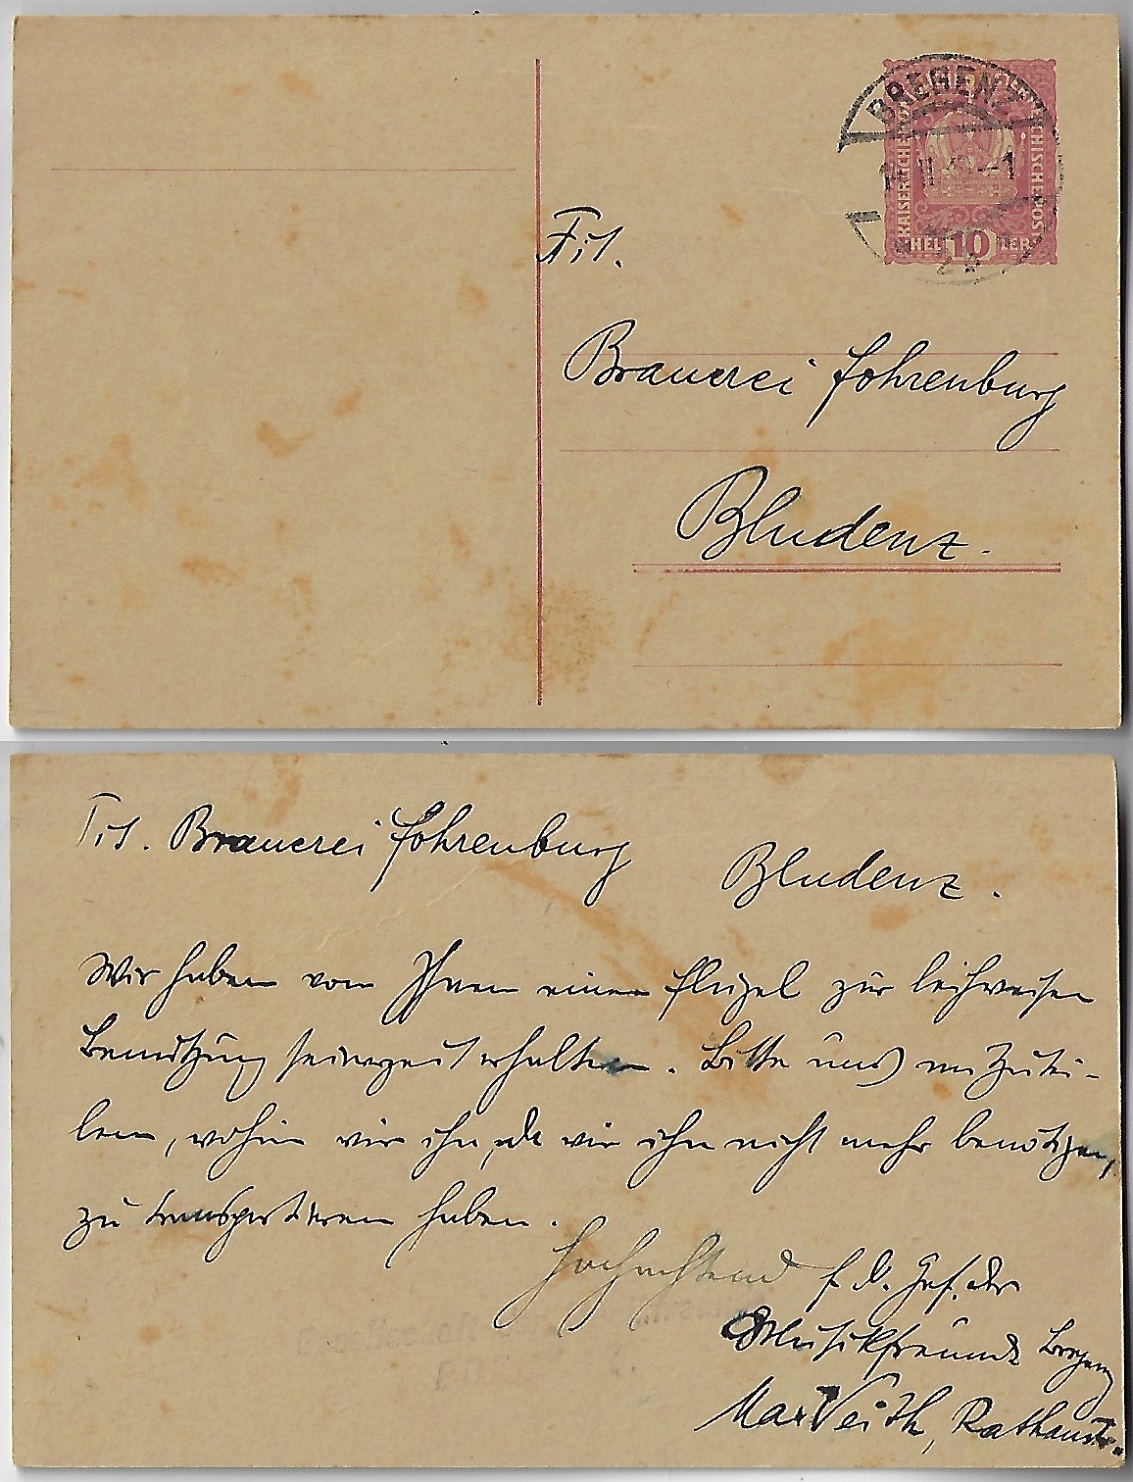 BREGENZ
KAISERLICHE
HELLER 10
Tit.
Brauerei Fohrenburg
Bludenz.
Tit. Brauerei Fohrenburg
Bludenz.
Wir haben von Ihnen einen Flügel zur leihweisen
Benützung seinerzeit erhalten. Bitte uns mitzutei-
len, wohin wir ihn, da wir ihn nicht mehr benötigen,
zu transportieren haben.
Hochachtend f. d. Ges. der
Musikfreunde Bregenz
Max Veith, Rathausstr.